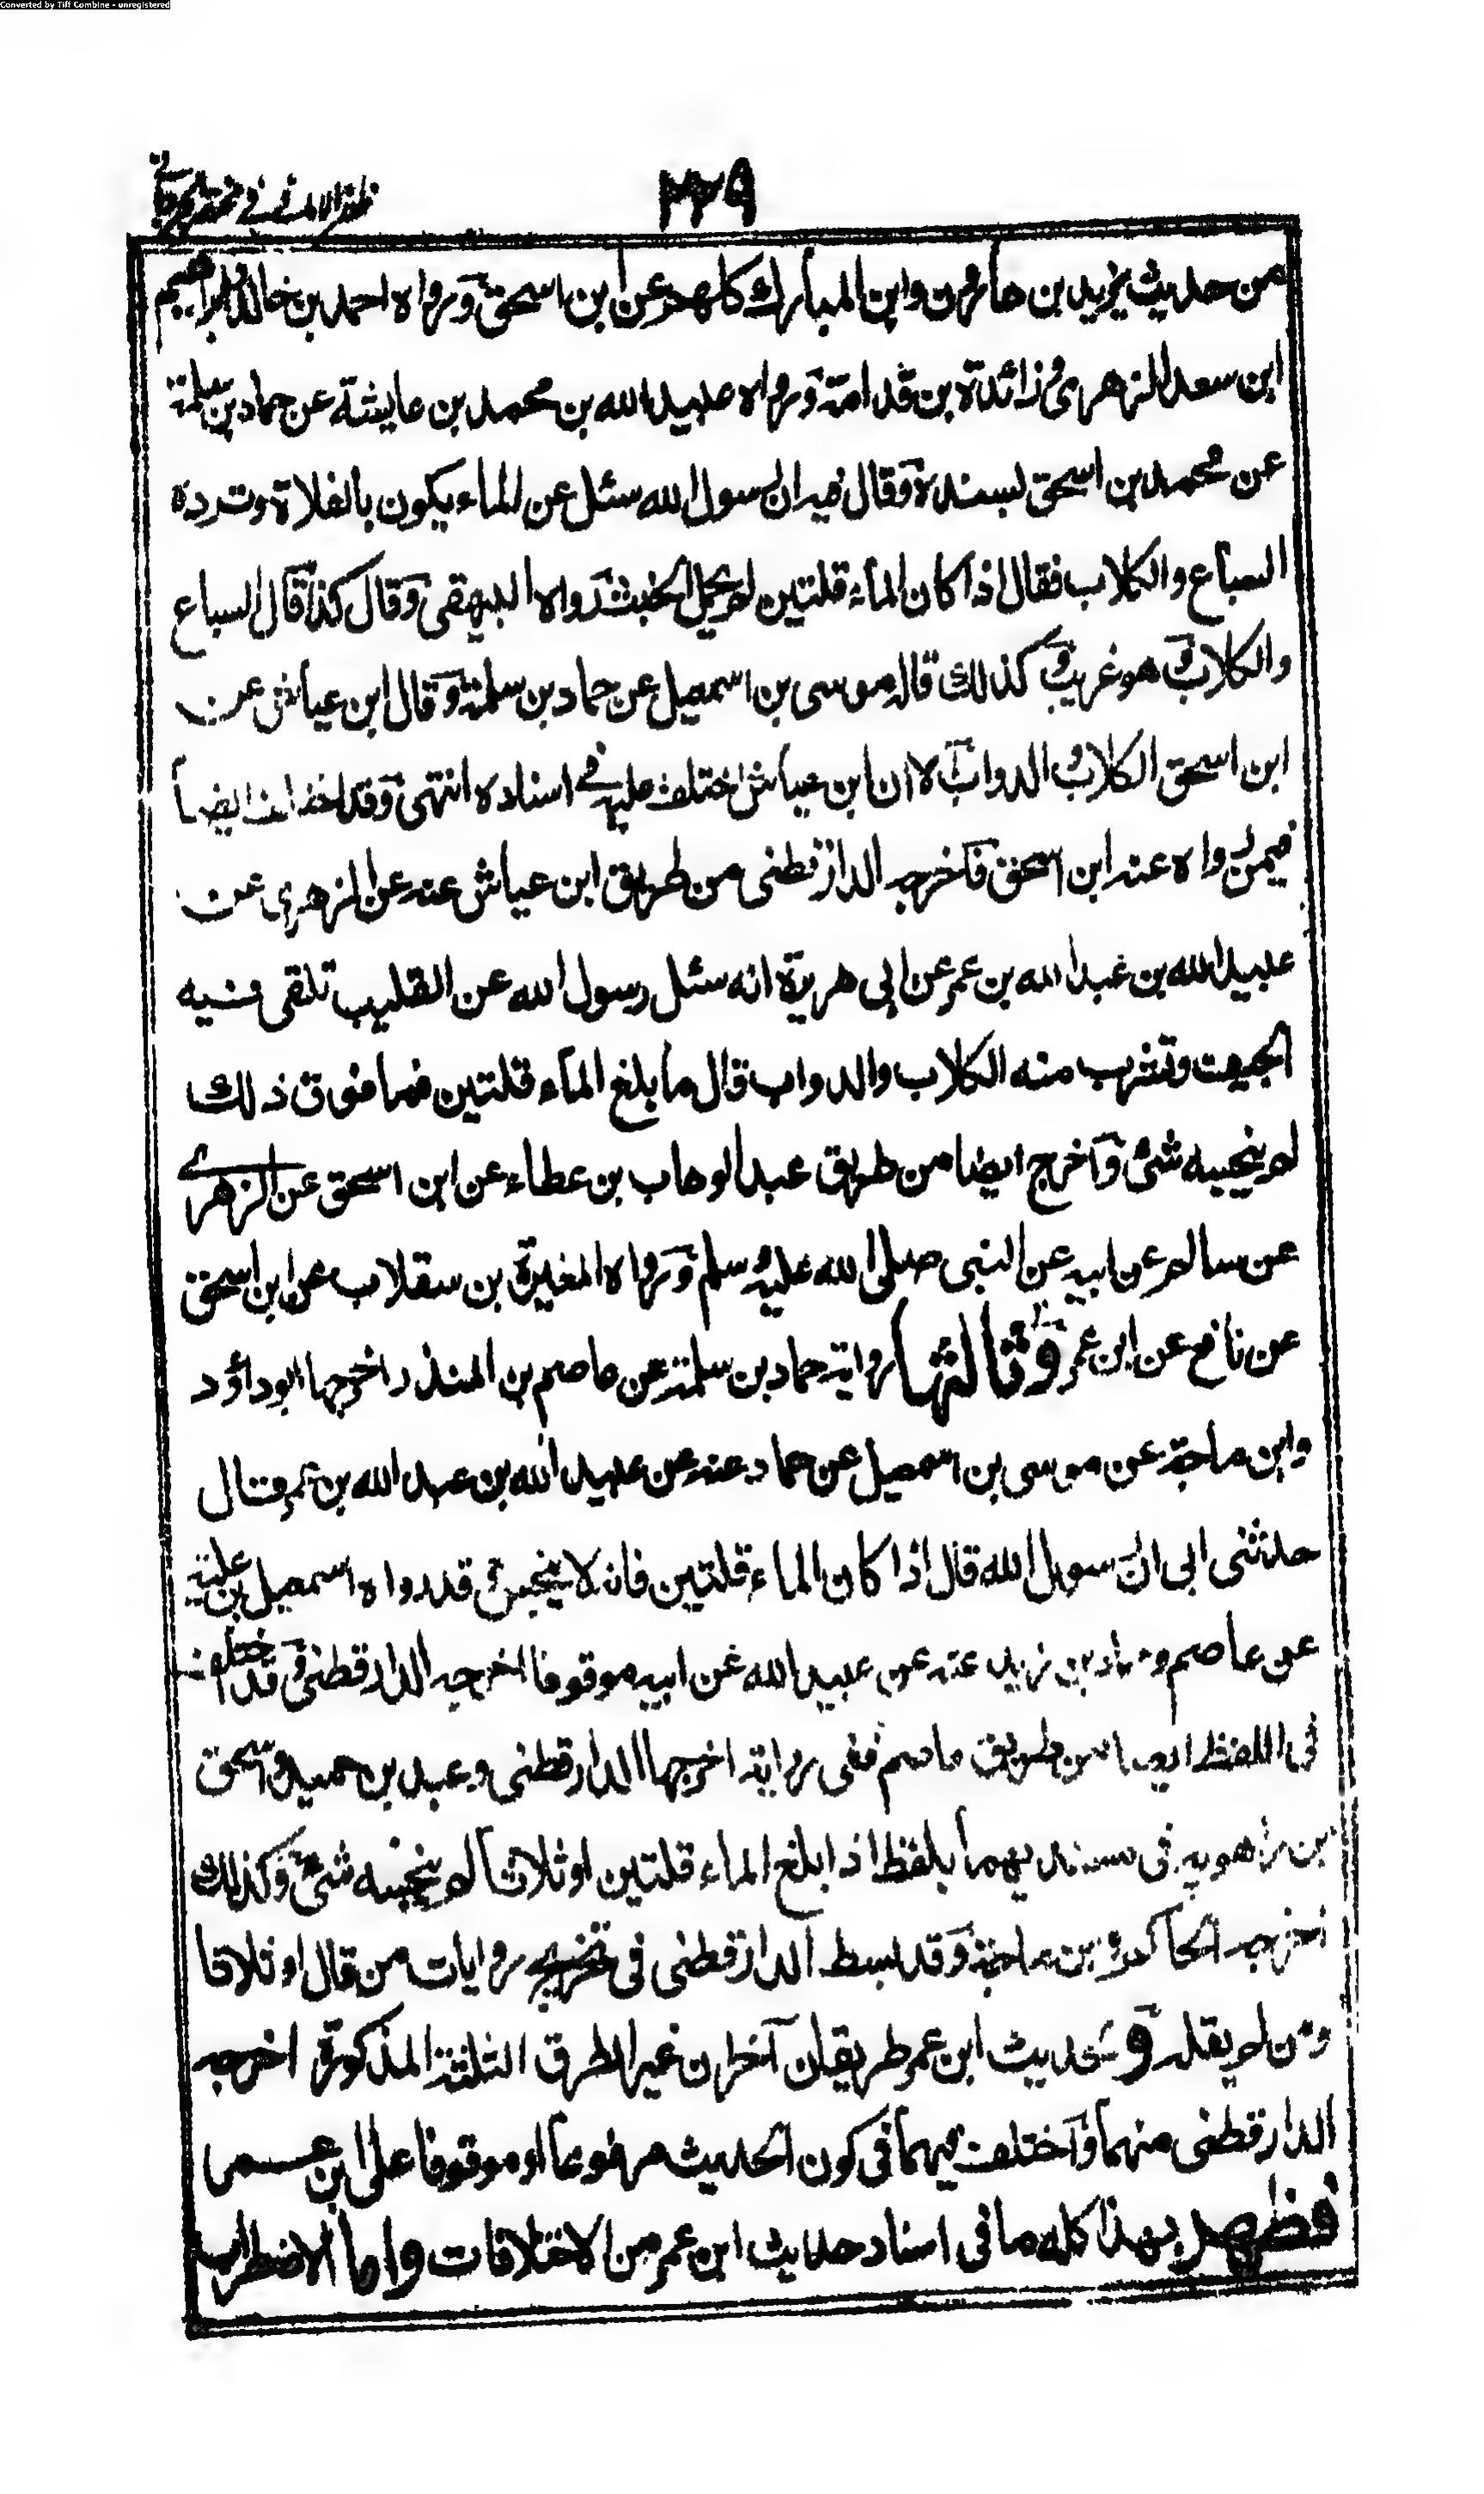 Converted by Tiff Combine - unregistered
٢٢٩
ظفر الامانى فى مختصر الجرجانى
من حديث يزيد بن هارون وابن المبارك كلهم عن ابن اسحق ورواه احمد بن خالد وابراهيم
ابن سعد الزهرى وزائدة بن قدامة ورواه عبيد الله بن محمد بن عايشة عن حماد بن سلمة
عن محمد بن اسحق بسنده وقال فيه ان رسول الله سئل عن الماء يكون بالفلاة وترده
السباع والكلاب فقال اذا كان الماء قلتين لم يحمل الخبث رواه البيهقى وقال كذا قال السباع
والكلاب وهو غريب وكذلك قاله موسى بن اسمعيل عن حماد بن سلمة وقال ابن عياش عن
ابن اسحق الكلاب والدواب الا ان ابن عياش اختلف عليه فى اسناده انتهى وقد اختلف ايضاً
فيمن رواه عنه ابن اسحق فاخرجه الدارقطنى من طريق ابن عياش عنه عن الزهرى عن
عبيد الله بن عبد الله بن عمر عن ابى هريرة انه سئل رسول الله عن القليب تلقى فيه
الجيف وتشرب منه الكلاب والدواب قال ما بلغ الماء قلتين فما فوق ذلك
لم ينجسه شئ وآخرج ايضا من طريق عبد الوهاب بن عطاء عن ابن اسحق عن الزهرے
عن سالم عن ابيه عن النبى صلى الله عليه وسلم ورواه المغيرة بن سقلاب عن ابن اسحق
عن نافع عن ابن عمر وثالثها رواية حماد بن سلمة عن عاصم بن المنذر اخرجها ابو داؤد
وابن ماجة عن موسى بن اسمعيل عن حماد عنه عن عبيد الله بن عبد الله بن عمر قال
حدثنى ابى ان رسول الله قال اذا كان الماء قلتين فانه لا ينجس وقد رواه اسمعيل بن علية
عن عاصم وحماد بن زيد عنه عن عبيد الله عن ابيه موقوفا اخرجه الدارقطنى وقد اختلف
فى اللفظ ايضا من طريق عاصم ففى رواية اخرجها الدارقطنى وعبد بن حميد واسحق
بن راهويه فى مسنديهما بلفظ اذا بلغ الماء قلتين او ثلاثا لم ينجسه شئ وكذلك
اخرجه الحاكم وابن ماجة وقد بسط الدارقطنى فى تخريج روايات من قال او ثلاثا
ومن لم يقله ولحديث ابن عمر طريقان آخران غير الطرق الثلثة المذكورة اخرجه
الدارقطنى منهما وآختلف فيهما فى كون الحديث مرفوعا او موقوفا على ابن عمر
فظهر بهذا كله ما فى اسناد حديث ابن عمر من الاختلافات واما الاضطراب